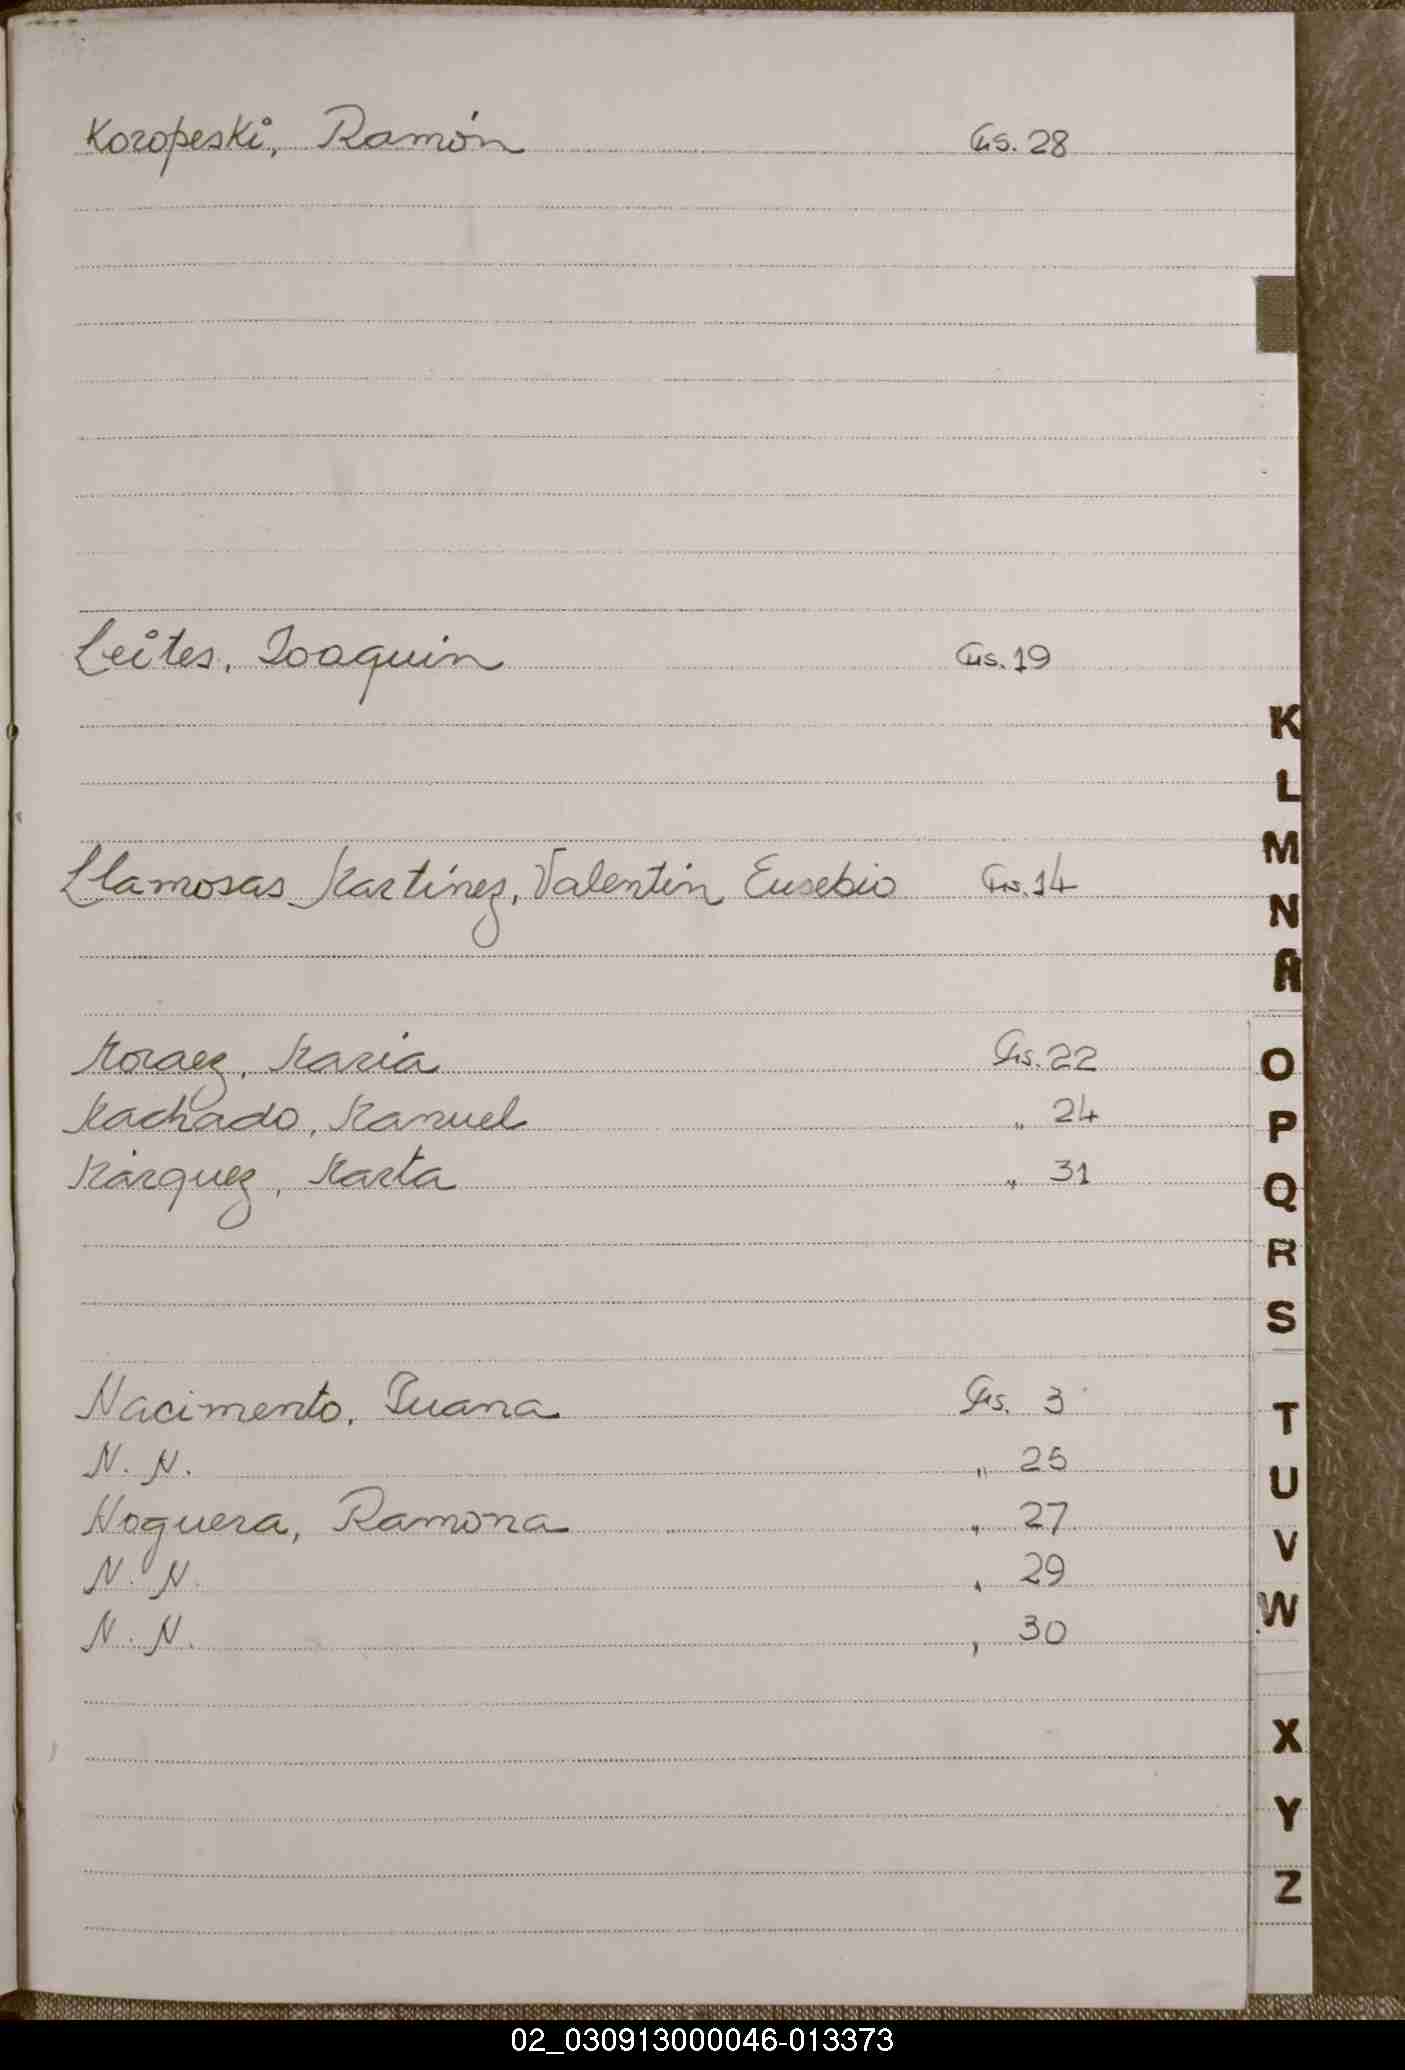 Koropeski, Ramón Gis. 28
Leites, Joaquin Gis. 19
Llamosas Martínez, Valentín Eusebio Gis. 14
Moraez, Maria Gis. 22
Machado, Manuel " 24
Márquez, Marta " 31
Nacimento, Juana Gis. 3
N. N. " 25
Noguera, Ramona " 27
N. N. " 29
N. N. " 30
K
L
M
N
Ñ
O
P
Q
R
S
T
U
V
W
X
Y
Z
02_030913000046-013373